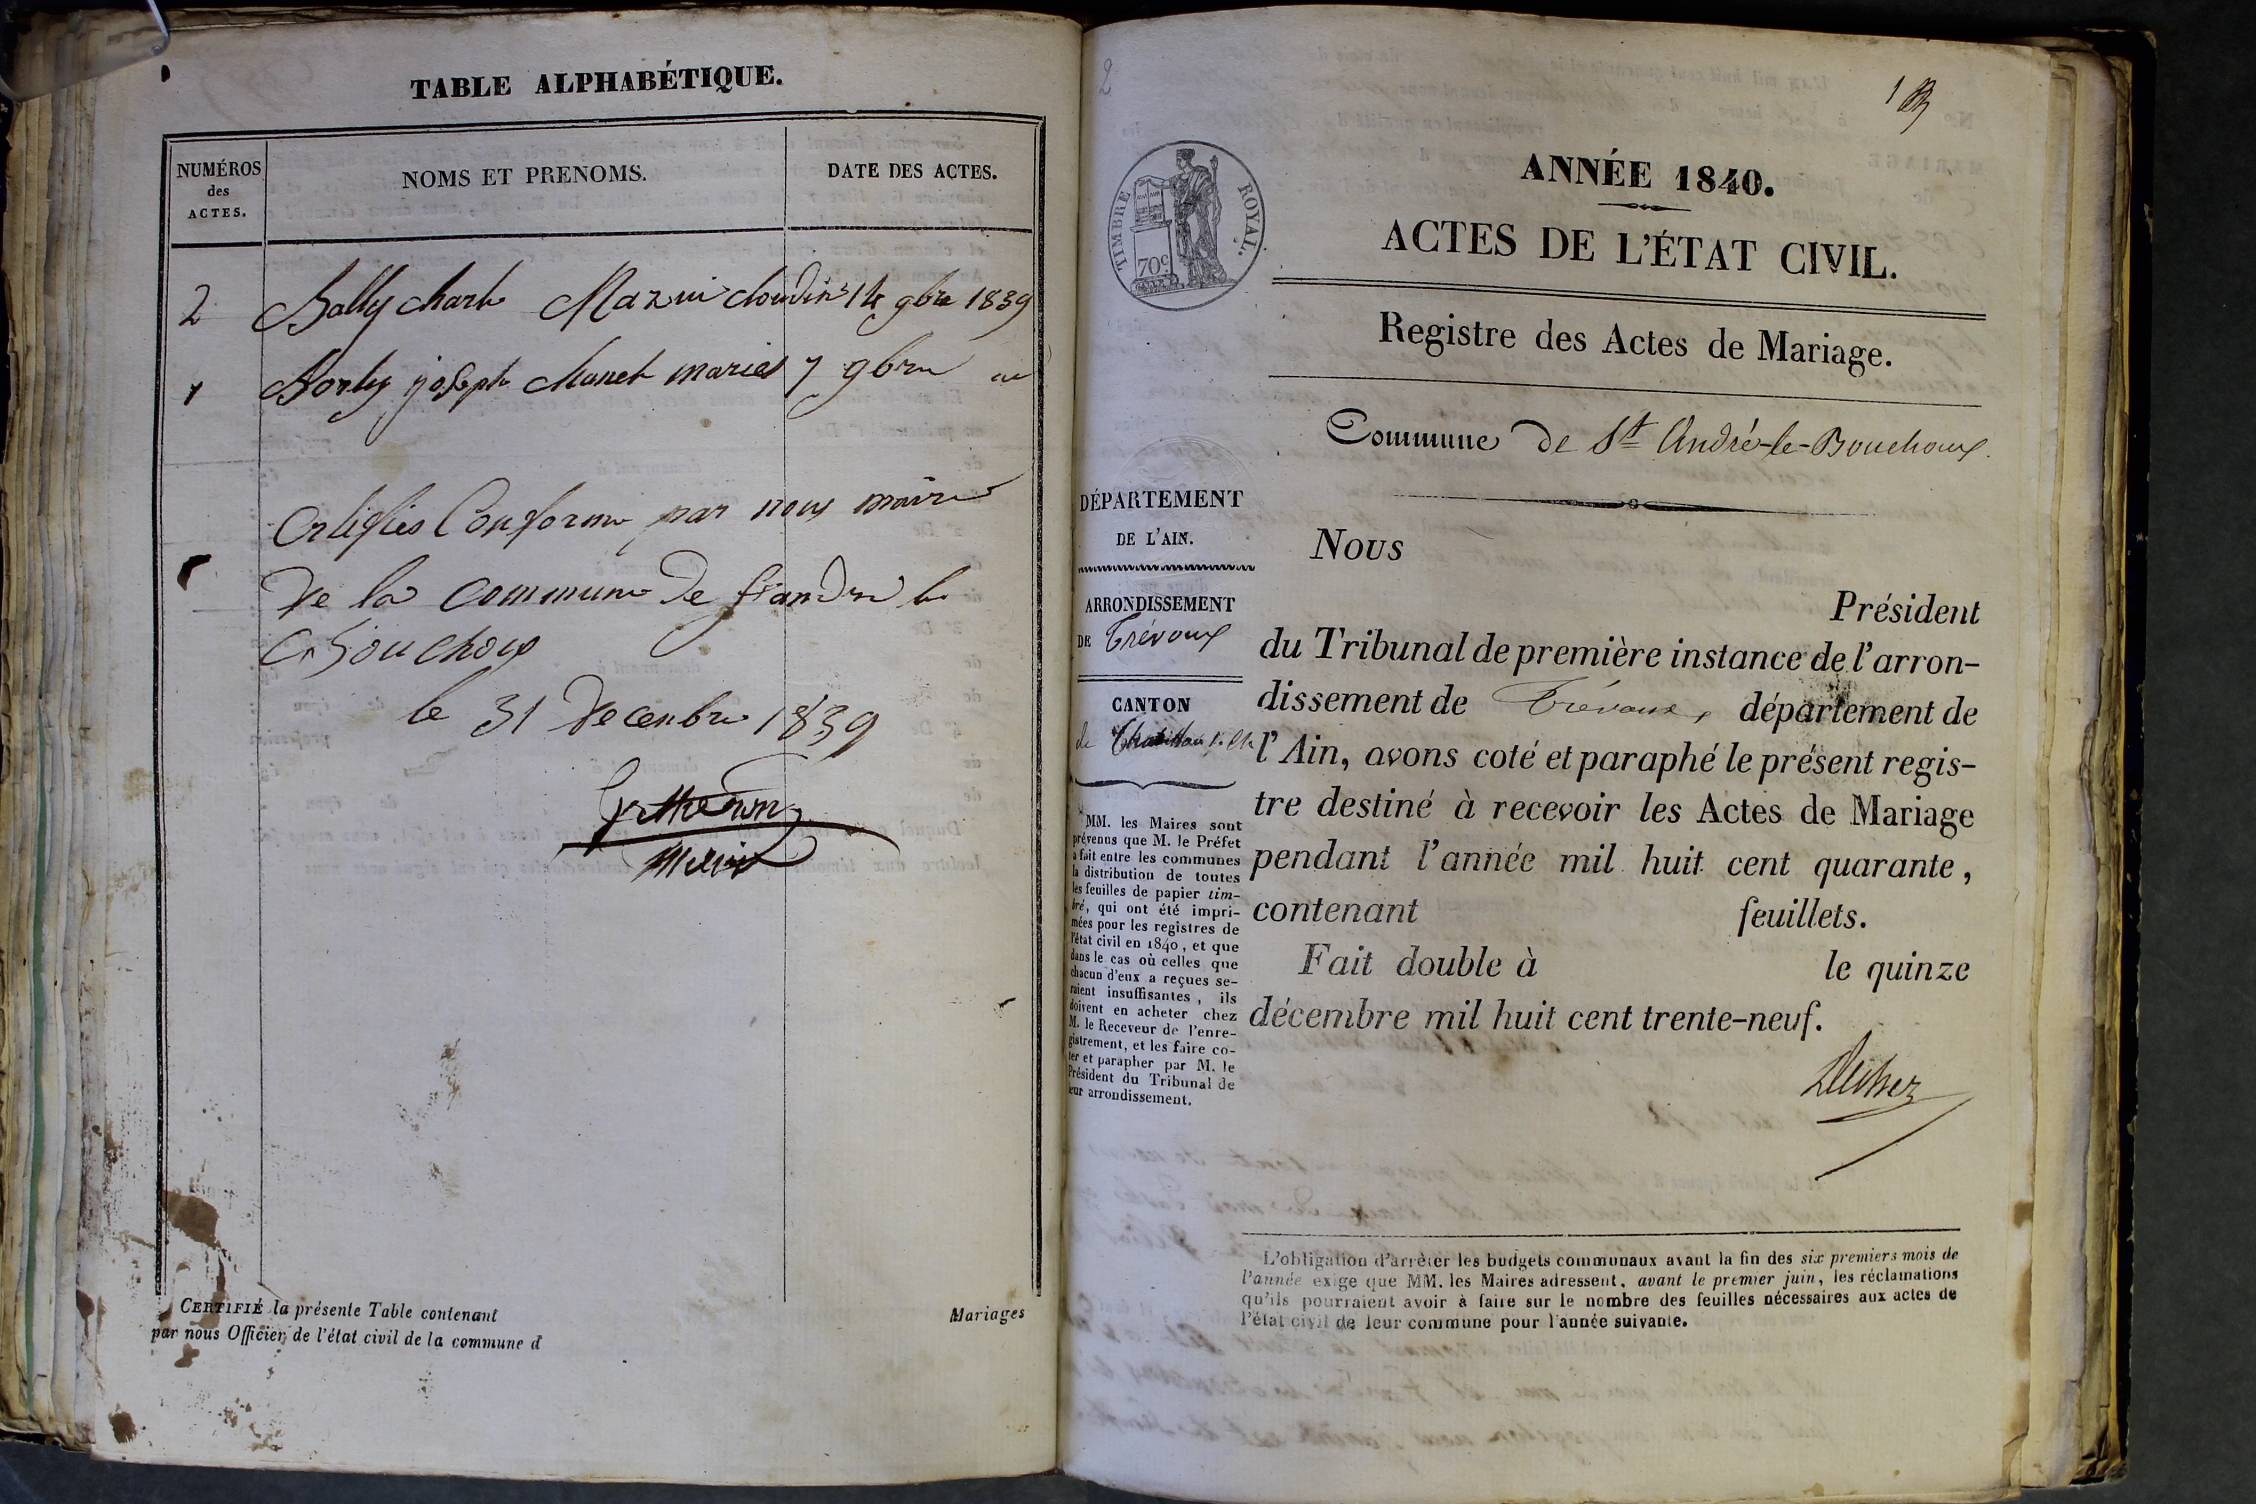 TABLE ALPHABÉTIQUE.
NUMÉROS
des
ACTES.
NOMS ET PRENOMS.
DATE DES ACTES.
2 Bally charle Mazui 14 9bre 1839
1 joseph marie 7 9bre
Certifiés Conforme par nous maire
de la commune de st andré le
Bouchoux
le 31 Decembre 1839
CERTIFIÉ la présente Table contenant
Mariages
par nous Officier de l'état civil de la commune d
2
1
TIMBRE ROYAL.
70c
ANNÉE 1840.
ACTES DE L'ÉTAT CIVIL.
Registre des Actes de Mariage.
Commune de St André-le-Bouchoux.
DÉPARTEMENT
DE L'AIN.
ARRONDISSEMENT
DE Trévoux
CANTON
de Chatillon s. Ch.
MM. les Maires sont
prévenus que M. le Préfet
a fait entre les communes
la distribution de toutes
les feuilles de papier tim-
bré, qui ont été impri-
mées pour les registres de
l'état civil en 1840, et que
dans le cas où celles que
chacun d'eux a reçues se-
raient insuffisantes, ils
doivent en acheter chez
M. le Receveur de l'enre-
gistrement, et les faire co-
ter et parapher par M. le
Président du Tribunal de
leur arrondissement.
Nous
Président
du Tribunal de première instance de l'arron-
dissement de Trévoux, département de
l'Ain, avons coté et paraphé le présent regis-
tre destiné à recevoir les Actes de Mariage
pendant l'année mil huit cent quarante,
contenant feuillets.
Fait double à le quinze
décembre mil huit cent trente-neuf.
L'obligation d'arrêter les budgets communaux avant la fin des six premiers mois de
l'année exige que MM. les Maires adressent, avant le premier juin, les réclamations
qu'ils pourraient avoir à faire sur le nombre des feuilles nécessaires aux actes de
l'état civil de leur commune pour l'année suivante.